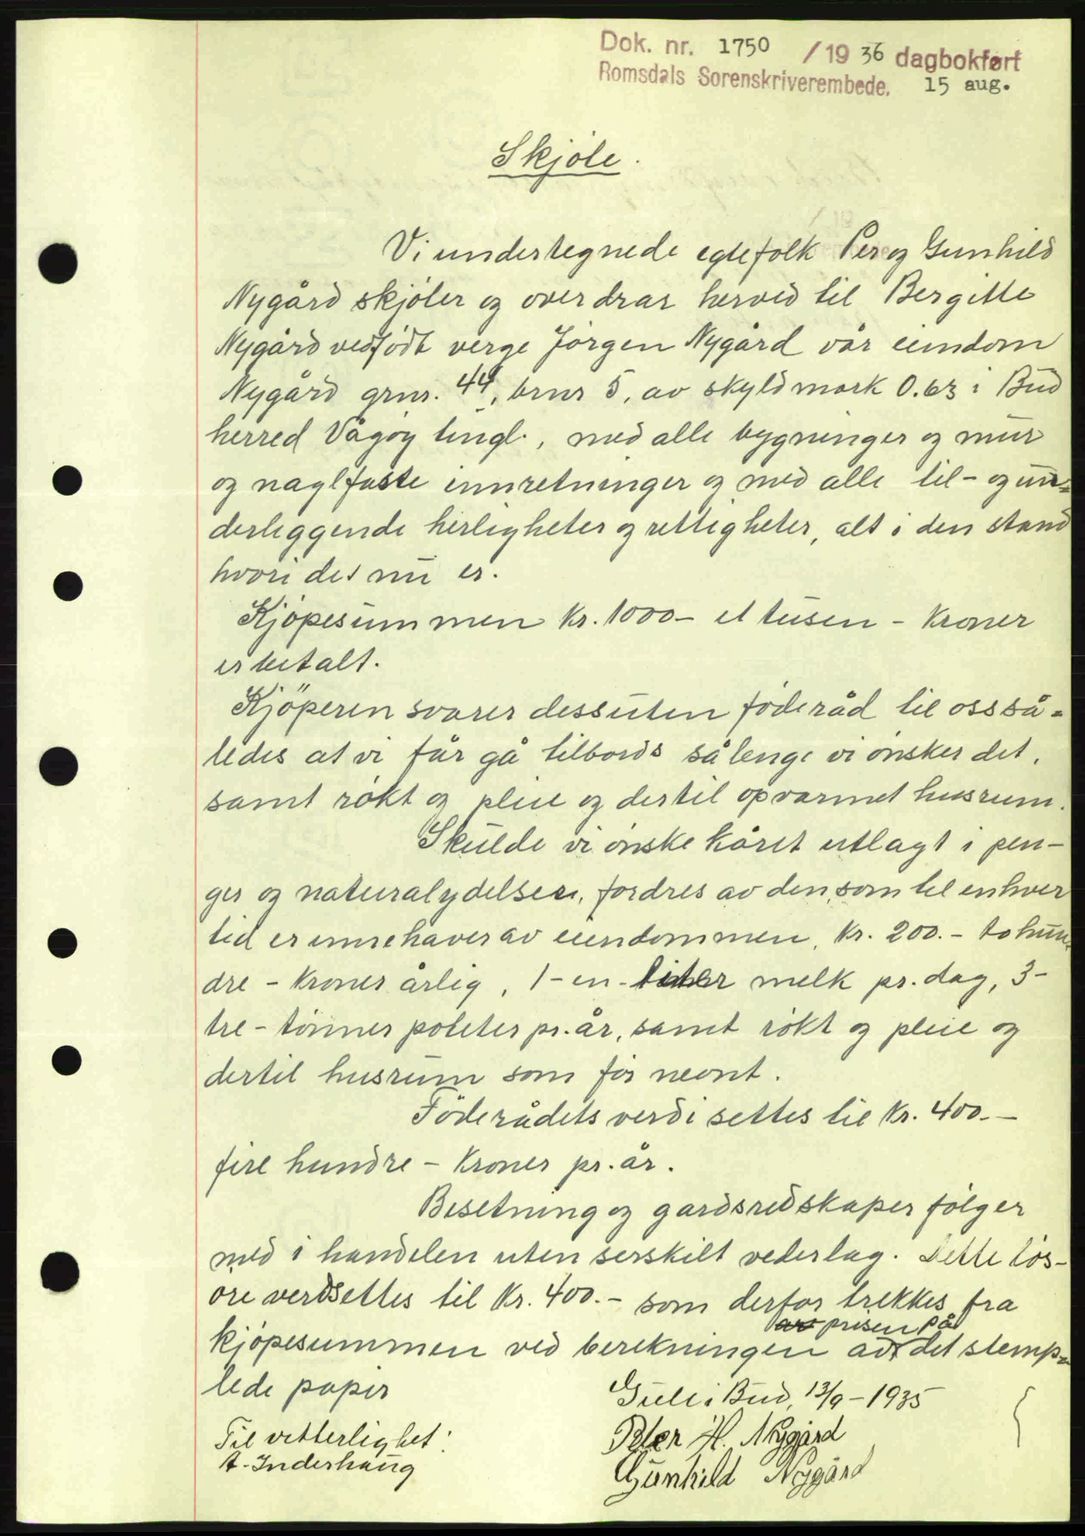 Dok. nr. 1750 / 1936 dagbokført
Romsdals Sorenskriverembede. 15 aug.
Skjöte.
Vi undertegnede egtefolk Per og Gunhild
Nygård skjöter og overdrar herved til Bergitte
Nygård ved födt verge Jörgen Nygård vår eiendom
Nygård grnr. 44, brnr 5, av skyldmark 0.63 i Bud
herred Vågöy tingl., med alle bygninger og mur
og naglfaste innretninger og med alle til- og un=
derliggende herligheter og rettigheter, alt i den stand
hvori det nu er.
Kjöpesummen Kr. 1000- et tusen - Kroner
er betalt.
Kjöperen svarer dessuten föderåd til oss så=
ledes at vi får gå tilbords så lenge vi önsker det,
samt rökt og pleie og dertil opvarmet husrum.
Skulde vi önske kåret utlagt i pen-
ger og naturalydelser, fordres av den, som til enhver
tid er innehaver av eiendommen, Kr. 200.- to hun=
dre - Kroner årlig, 1-en-liter melk pr. dag, 3-
tre - tönner poteter pr. år, samt rökt og pleie og
dertil husrum som för nevnt.
Föderådets verdi settes til Kr. 400.-
fire hundre - Kroner pr. år.
Besetning og gardsredskaper fölger
med i handelen uten serskilt vederlag. Dette lös-
öre verdsettes til Kr. 400.- som derfor trekkes fra
prisen på
kjöpesummen ved berekningen av det stemp=
lede papir
Gule i Bud, 13/9-1935
Til vitterlighet:
Peter H. Nygård
A. Inderhaug
Gunhild Nygård